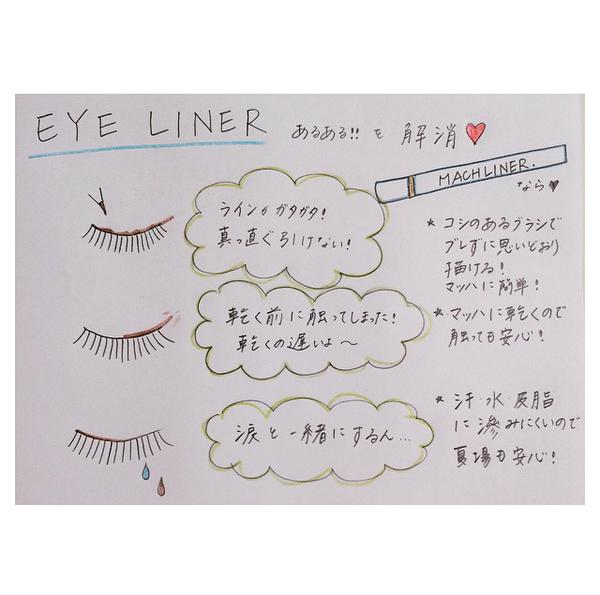 EYE LINER あるある!! を 解消
MACHLINER.
なら
ラインがガタガタ!
真っ直ぐ引けない!
★ コシのあるブラシで
ブレずに思いどおり
描ける!
マッハに簡単!
乾く前に触ってしまった!
乾くの遅いよ〜
★ マッハに乾くので
触っても安心!
涙と一緒にするん...
★ 汗・水・皮脂
に滲みにくいので
夏場も安心!